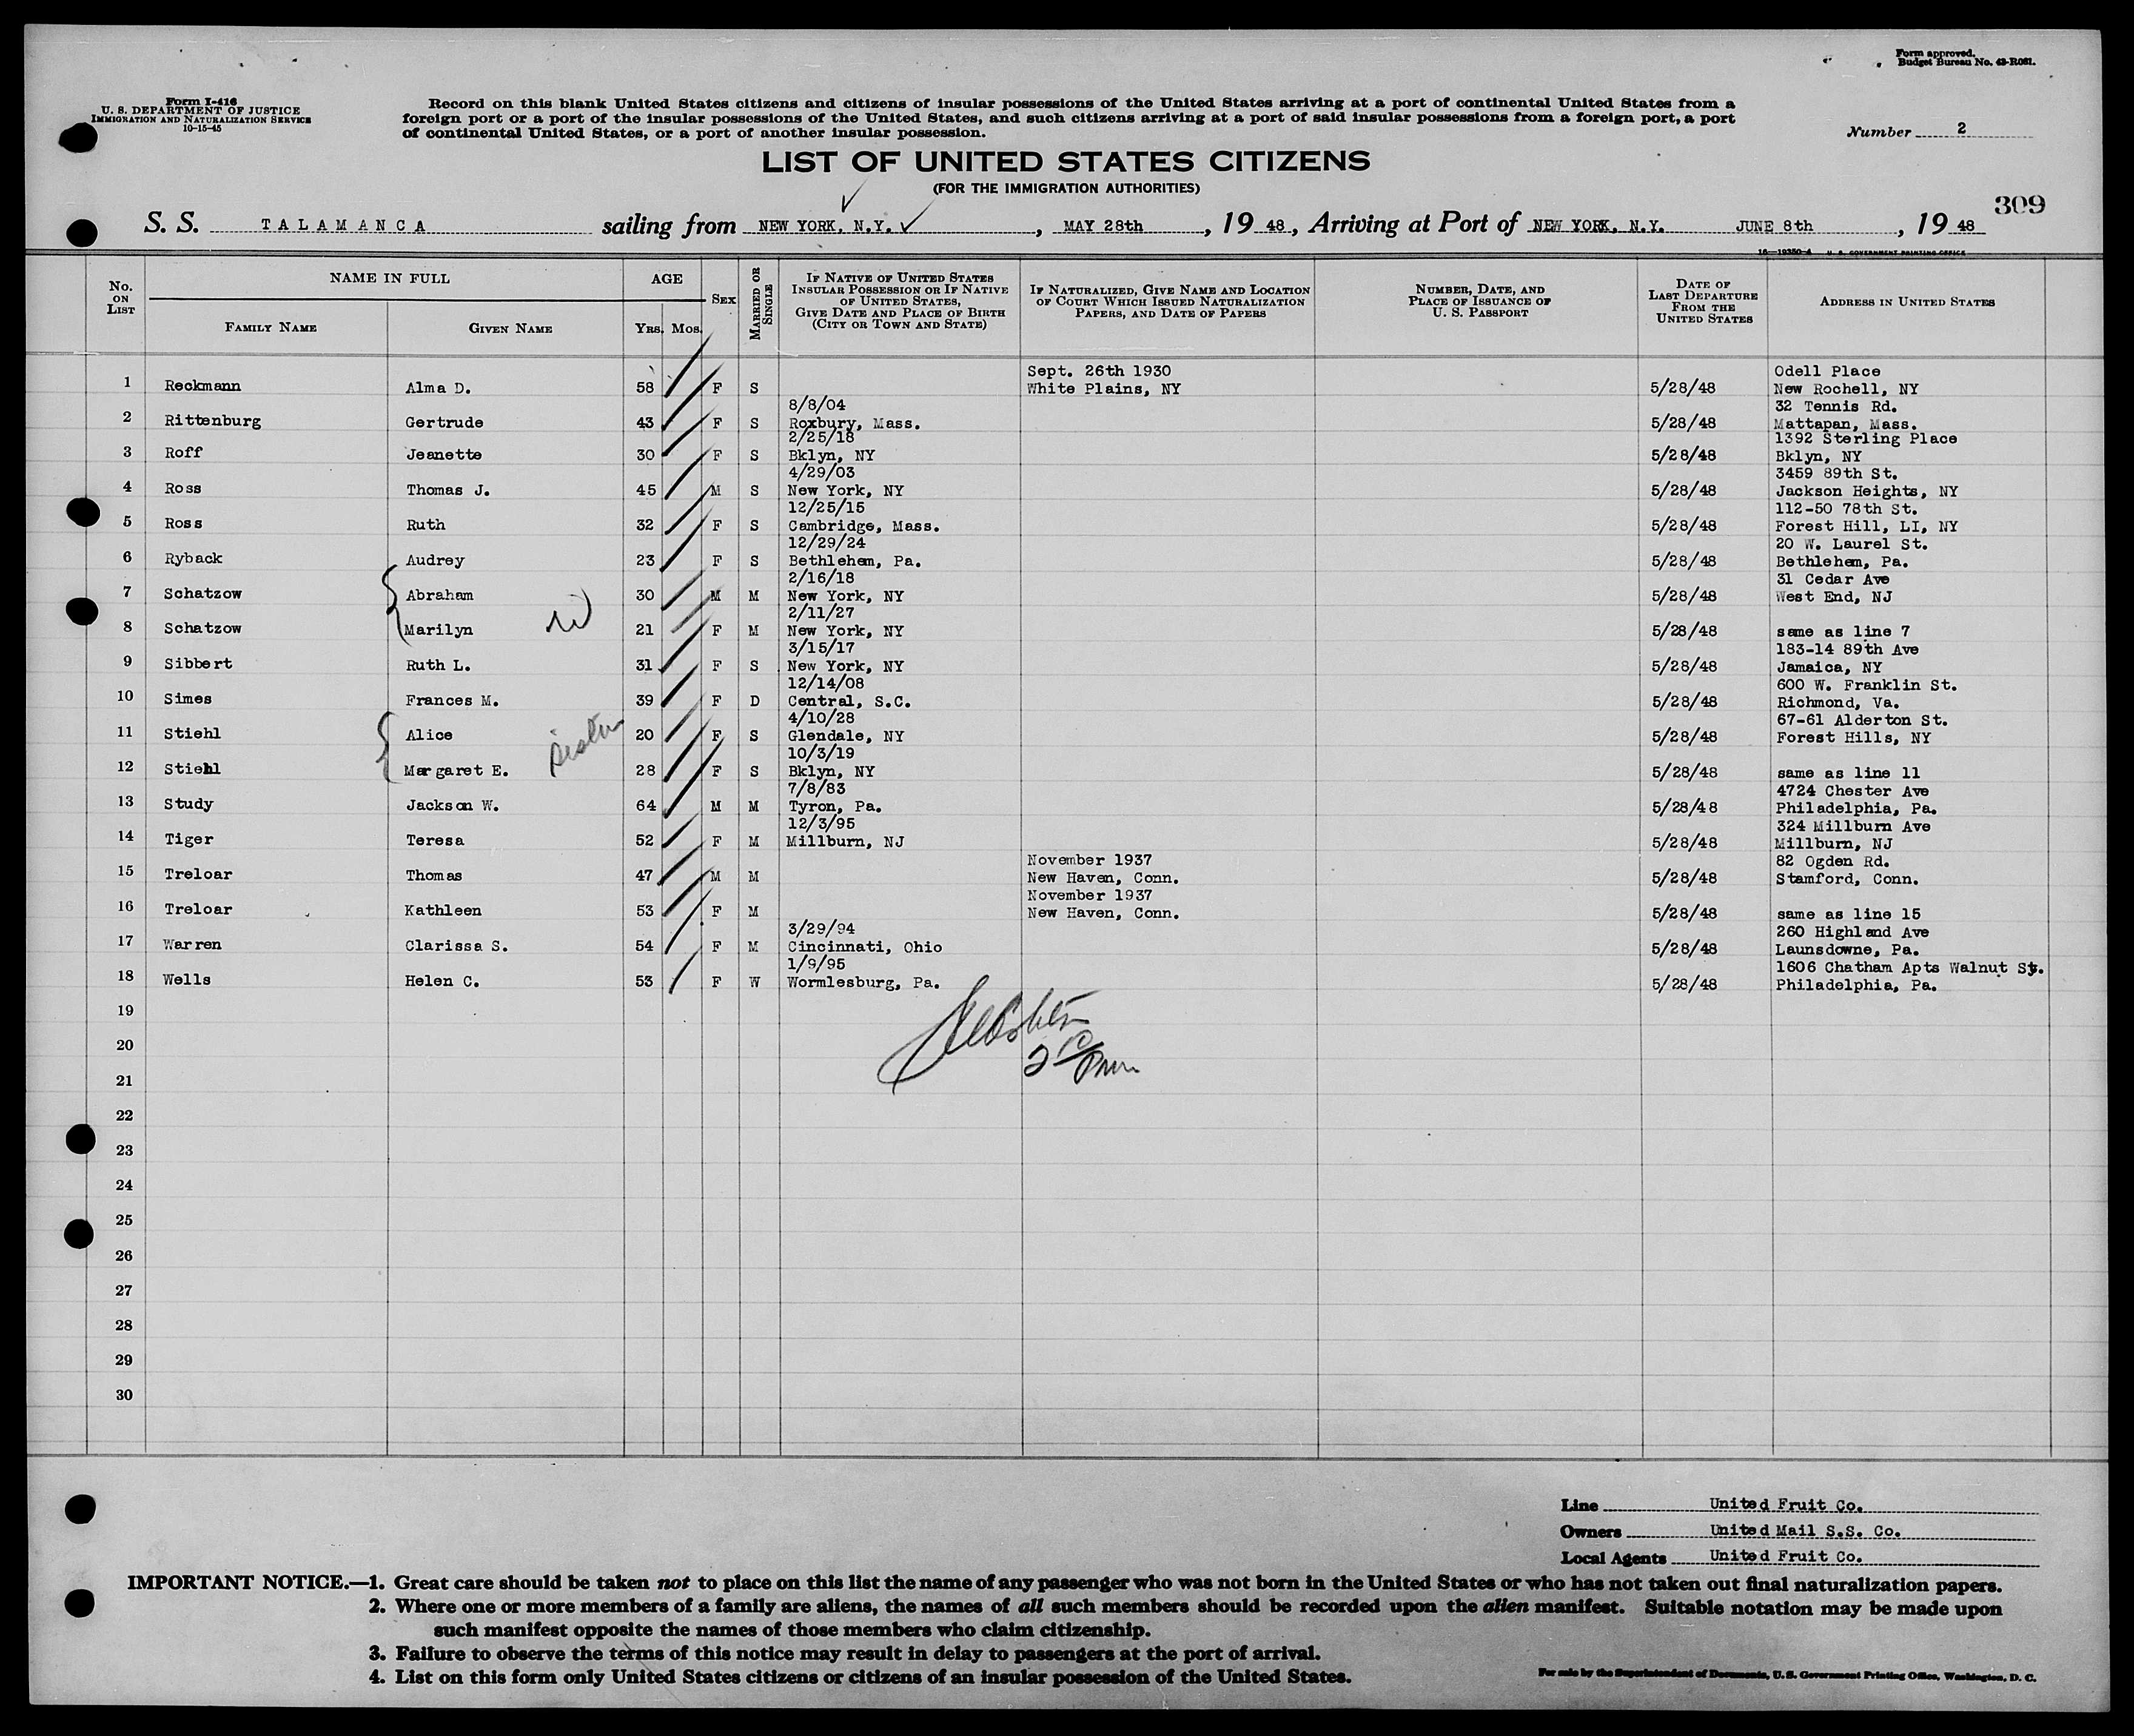 Form approved.
Budget Bureau No. 43-R081.
Form I-416
U. S. DEPARTMENT OF JUSTICE
IMMIGRATION AND NATURALIZATION SERVICE
10-15-45
Record on this blank United States citizens and citizens of insular possessions of the United States arriving at a port of continental United States from a
foreign port or a port of the insular possessions of the United States, and such citizens arriving at a port of said insular possessions from a foreign port, a port
of continental United States, or a port of another insular possession.
Number 2
LIST OF UNITED STATES CITIZENS
(FOR THE IMMIGRATION AUTHORITIES)
309
S. S. TALAMANCA sailing from NEW YORK, N.Y. , MAY 28th , 19 48 , Arriving at Port of NEW YORK, N.Y. JUNE 8th , 19 48
16—19350-4 U. S. GOVERNMENT PRINTING OFFICE
No. ON LIST NAME IN FULL FAMILY NAME GIVEN NAME AGE YRS. MOS. SEX MARRIED OR SINGLE IF NATIVE OF UNITED STATES INSULAR POSSESSION OR IF NATIVE OF UNITED STATES, GIVE DATE AND PLACE OF BIRTH (CITY OR TOWN AND STATE) IF NATURALIZED, GIVE NAME AND LOCATION OF COURT WHICH ISSUED NATURALIZATION PAPERS, AND DATE OF PAPERS NUMBER, DATE, AND PLACE OF ISSUANCE OF U. S. PASSPORT DATE OF LAST DEPARTURE FROM THE UNITED STATES ADDRESS IN UNITED STATES
Sept. 26th 1930 Odell Place
1 Reckmann Alma D. 58 F S White Plains, NY 5/28/48 New Rochell, NY
8/8/04 32 Tennis Rd.
2 Rittenburg Gertrude 43 F S Roxbury, Mass. 5/28/48 Mattapan, Mass.
2/25/18 1392 Sterling Place
3 Roff Jeanette 30 F S Bklyn, NY 5/28/48 Bklyn, NY
4/29/03 3459 89th St.
4 Ross Thomas J. 45 M S New York, NY 5/28/48 Jackson Heights, NY
12/25/15 112-50 78th St.
5 Ross Ruth 32 F S Cambridge, Mass. 5/28/48 Forest Hill, LI, NY
12/29/24 20 W. Laurel St.
6 Ryback Audrey 23 F S Bethlehem, Pa. 5/28/48 Bethlehem, Pa.
2/16/18 31 Cedar Ave
7 Schatzow Abraham 30 M M New York, NY 5/28/48 West End, NJ
2/11/27
8 Schatzow Marilyn 21 F M New York, NY 5/28/48 same as line 7
3/15/17 183-14 89th Ave
9 Sibbert Ruth L. 31 F S New York, NY 5/28/48 Jamaica, NY
12/14/08 600 W. Franklin St.
10 Simes Frances M. 39 F D Central, S.C. 5/28/48 Richmond, Va.
4/10/28 67-61 Alderton St.
11 Stiehl Alice sister 20 F S Glendale, NY 5/28/48 Forest Hills, NY
10/3/19
12 Stiehl Margaret E. 28 F S Bklyn, NY 5/28/48 same as line 11
7/8/83 4724 Chester Ave
13 Study Jackson W. 64 M M Tyron, Pa. 5/28/48 Philadelphia, Pa.
12/3/95 324 Millburn Ave
14 Tiger Teresa 52 F M Millburn, NJ 5/28/48 Millburn, NJ
November 1937 82 Ogden Rd.
15 Treloar Thomas 47 M M New Haven, Conn. 5/28/48 Stamford, Conn.
November 1937
16 Treloar Kathleen 53 F M New Haven, Conn. 5/28/48 same as line 15
3/29/94 260 Highland Ave
17 Warren Clarissa S. 54 F M Cincinnati, Ohio 5/28/48 Launsdowne, Pa.
1/9/95 1606 Chatham Apts Walnut St.
18 Wells Helen C. 53 F W Wormlesburg, Pa. 5/28/48 Philadelphia, Pa.
19
20 2 10/ Pm
21
22
23
24
25
26
27
28
29
30
Line United Fruit Co.
Owners United Mail S.S. Co.
Local Agents United Fruit Co.
IMPORTANT NOTICE.—1. Great care should be taken not to place on this list the name of any passenger who was not born in the United States or who has not taken out final naturalization papers.
2. Where one or more members of a family are aliens, the names of all such members should be recorded upon the alien manifest. Suitable notation may be made upon
such manifest opposite the names of those members who claim citizenship.
3. Failure to observe the terms of this notice may result in delay to passengers at the port of arrival.
4. List on this form only United States citizens or citizens of an insular possession of the United States.
For sale by the Superintendent of Documents, U. S. Government Printing Office, Washington, D. C.